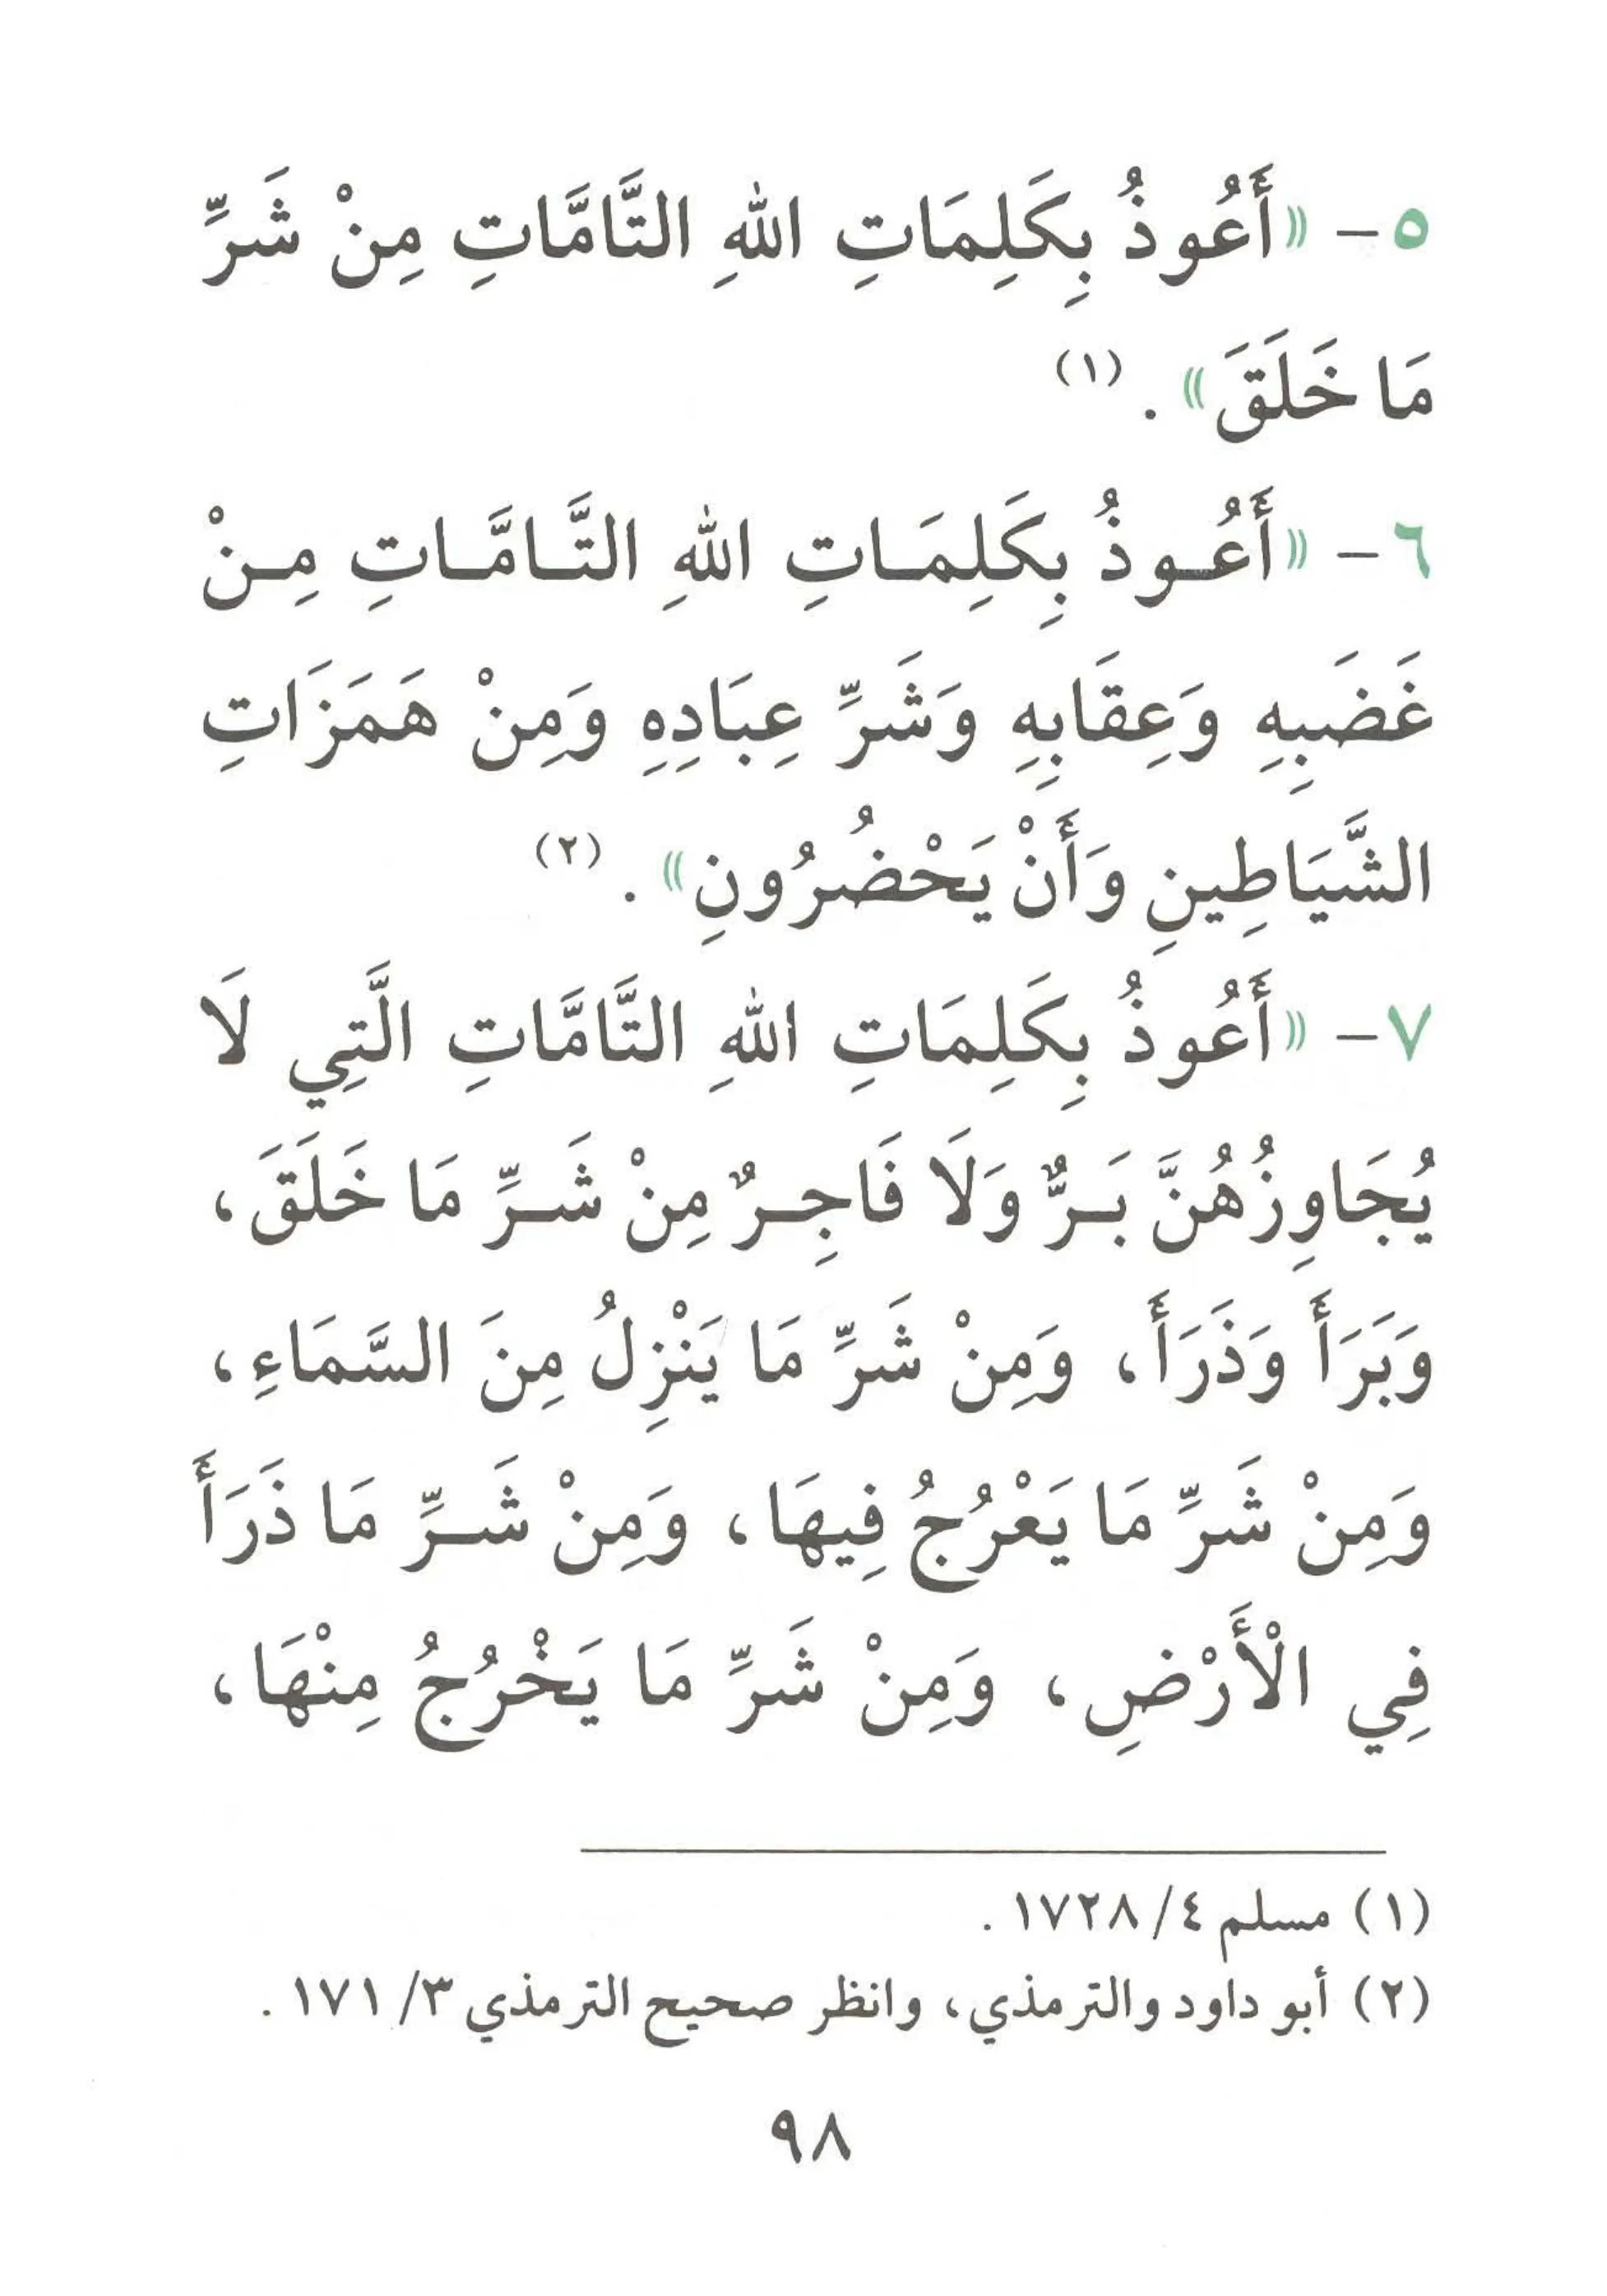 ٥- «أَعُوذُ بِكَلِمَاتِ اللهِ التَّامَّاتِ مِنْ شَرِّ
مَا خَلَقَ» . (١)
٦- «أَعُوذُ بِكَلِمَاتِ اللهِ التَّامَّاتِ مِنْ
غَضَبِهِ وَعِقَابِهِ وَشَرِّ عِبَادِهِ وَمِنْ هَمَزَاتِ
الشَّيَاطِينِ وَأَنْ يَحْضُرُونِ» . (٢)
٧- «أَعُوذُ بِكَلِمَاتِ اللهِ التَّامَّاتِ الَّتِي لَا
يُجَاوِزُهُنَّ بَرٌّ وَلَا فَاجِرٌ مِنْ شَرِّ مَا خَلَقَ،
وَبَرَأَ وَذَرَأَ، وَمِنْ شَرِّ مَا يَنْزِلُ مِنَ السَّمَاءِ،
وَمِنْ شَرِّ مَا يَعْرُجُ فِيهَا، وَمِنْ شَرِّ مَا ذَرَأَ
فِي الْأَرْضِ، وَمِنْ شَرِّ مَا يَخْرُجُ مِنْهَا،
(١) مسلم ٤/ ١٧٢٨ .
(٢) أبو داود والترمذي، وانظر صحيح الترمذي ٣/ ١٧١ .
٩٨